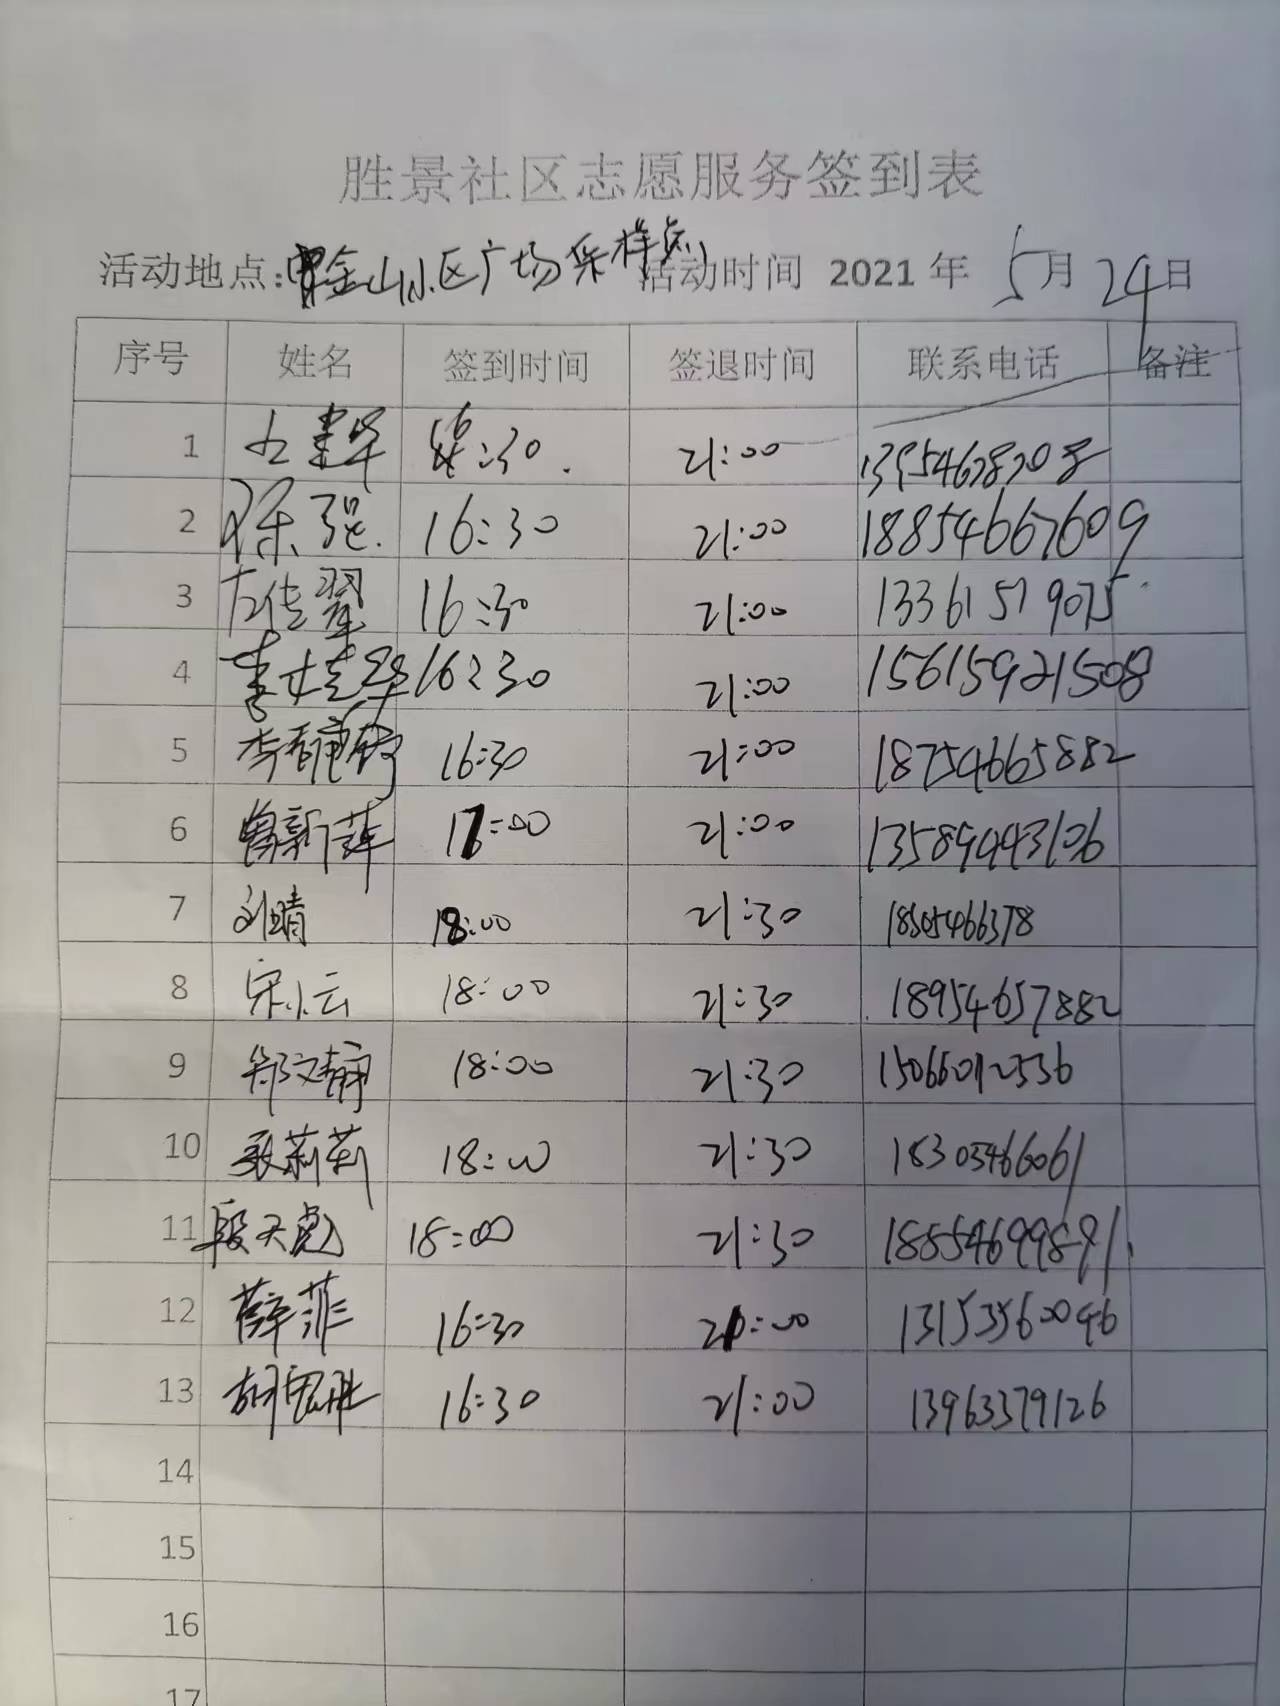 胜景社区志愿服务签到表
活动地点:金山小区广场采样点 活动时间 2021 年 5 月 24 日
序号 姓名 签到时间 签退时间 联系电话 备注
1 :30 21:00
2 强 16:30 21:00 18854667609
3 左佳翟 16:30 21:00 13361519075
4 16:30 21:00 15615921508
5 李 16:30 21:00 18754665882
6 曾新萍 17:00 21:00
7 刘晴 18:00 21:30 18505466378
8 宋小云 18:00 21:30 18954657882
9 郑文静 18:00 21:30
10 张莉莉 18:00 21:30
11 段天彪 18:00 21:30 18854699891
12 薛菲 16:30 21:00 13153560046
13 胡 胜 16:30 21:00 13963379126
14
15
16
17